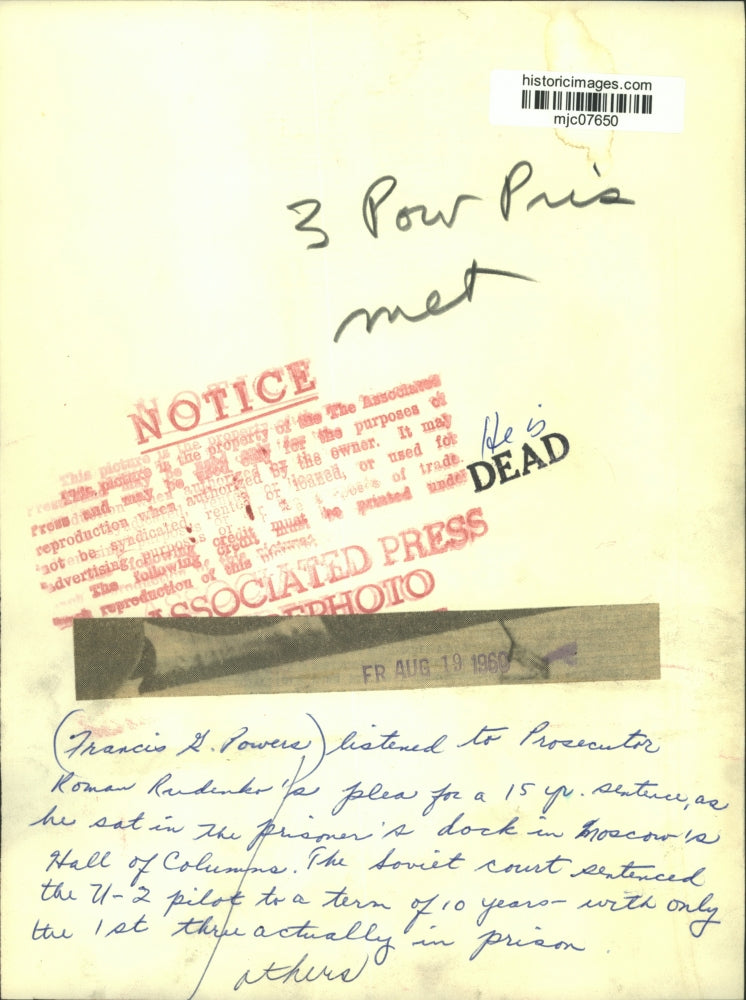 historicimages.com
mjc07650
3 Pow Pris
met
NOTICE
This picture is the property of the The Associated
Press and may be used only for the purposes of
reproduction when authorized by the owner. It may
not be syndicated, rented or loaned, or used for
advertising purposes or of trade.
The following credit must be printed under
each reproduction of this picture:
ASSOCIATED PRESS
PHOTO
He is
DEAD
FR AUG 19 1960
(Francis G. Powers) listened to Prosecutor
Roman Rudenko's plea for a 15 yr. sentence, as
he sat in the prisoner's dock in Moscow's
Hall of Columns. The Soviet court sentenced
the U-2 pilot to a term of 10 years - with only
the 1st three actually in prison.
others